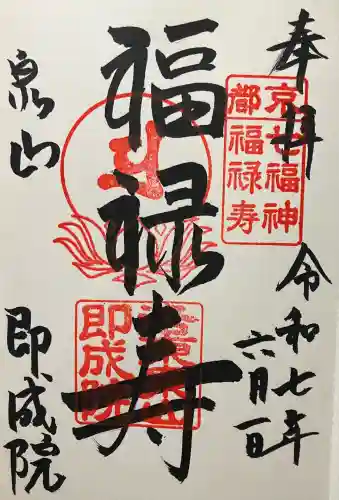 奉拝
令和七年
六月一日
京七福神
都福禄寿
福禄寿
泉山
即成院
即成院